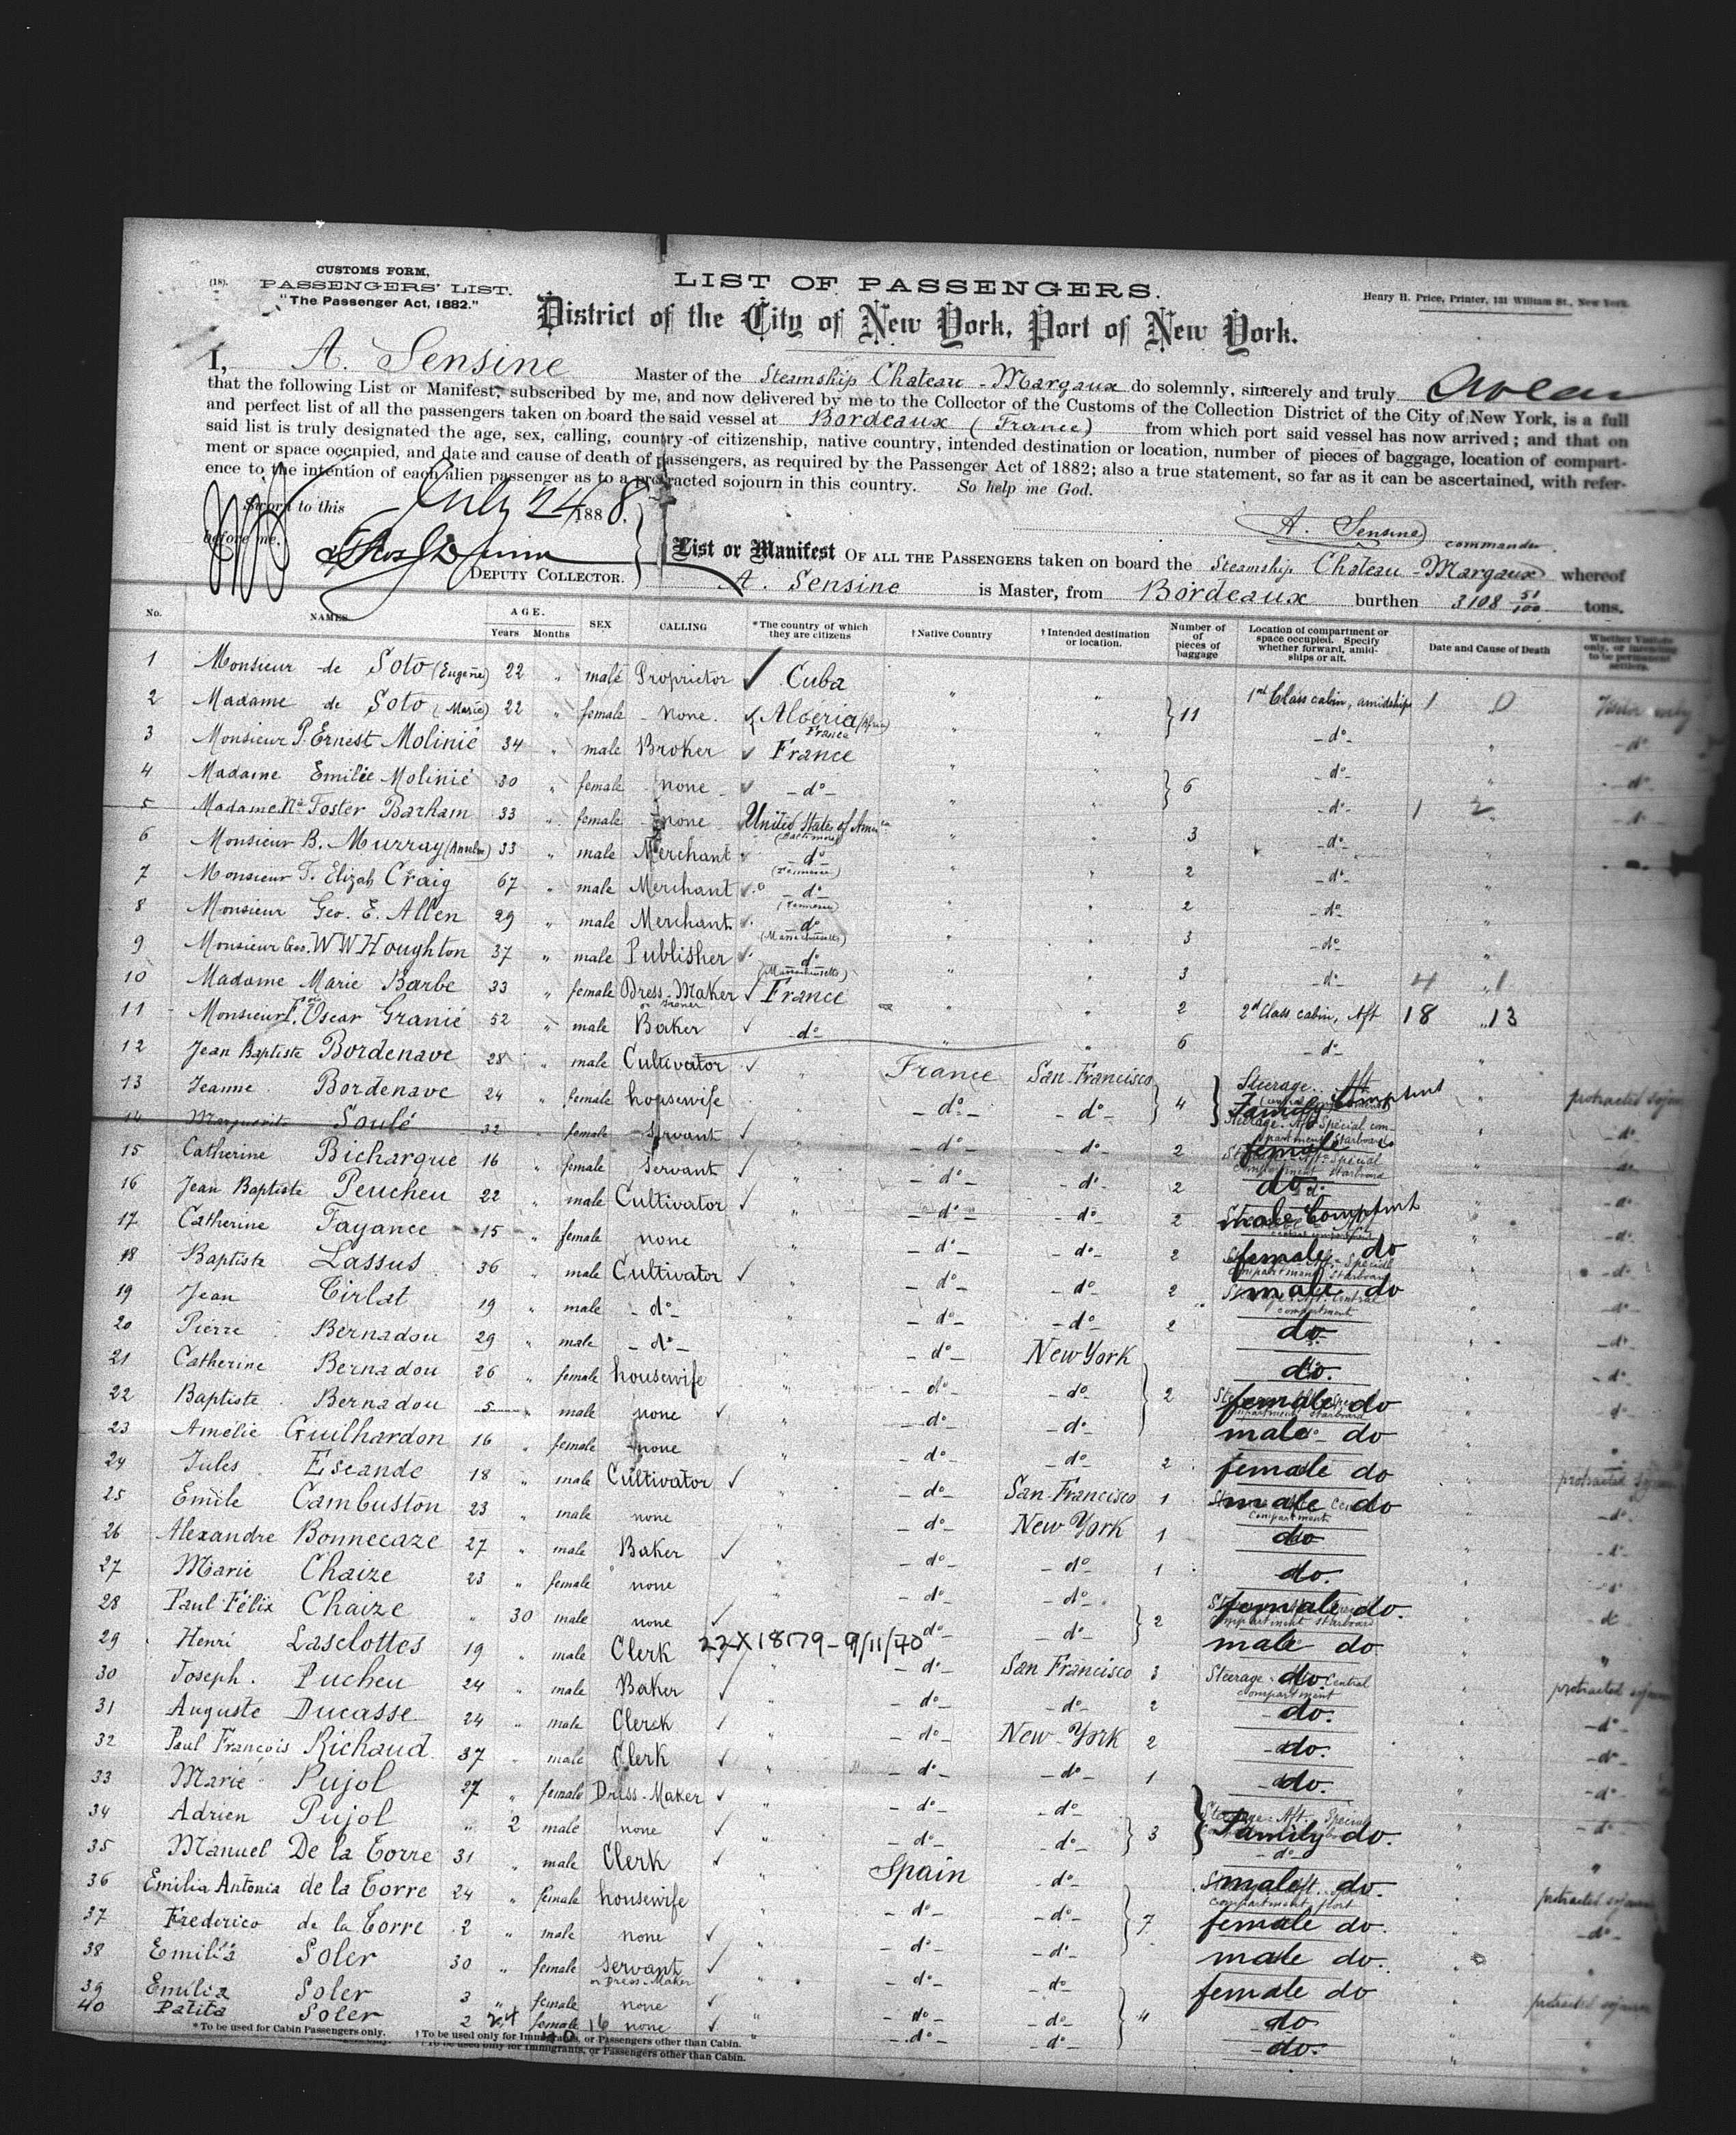 (18).
CUSTOMS FORM,
PASSENGERS' LIST.
"The Passenger Act, 1882."
LIST OF PASSENGERS.
Henry H. Price, Printer, 131 William St., New York.
District of the City of New York, Port of New York.
I, A. Sensine Master of the Steamship Chateau-Margaux do solemnly, sincerely and truly
that the following List or Manifest, subscribed by me, and now delivered by me to the Collector of the Customs of the Collection District of the City of New York, is a full
and perfect list of all the passengers taken on board the said vessel at Bordeaux (France) from which port said vessel has now arrived; and that on
said list is truly designated the age, sex, calling, country of citizenship, native country, intended destination or location, number of pieces of baggage, location of compart-
ment or space occupied, and date and cause of death of passengers, as required by the Passenger Act of 1882; also a true statement, so far as it can be ascertained, with refer-
ence to the intention of each alien passenger as to a protracted sojourn in this country. So help me God.
Sworn to this July 24 1888.
before me.
A. Sensine
commander.
DEPUTY COLLECTOR.
List or Manifest OF ALL THE PASSENGERS taken on board the Steamship Chateau-Margaux whereof
A. Sensine is Master, from Bordeaux burthen 3108 51/100 tons.
No. NAMES. AGE. Years Months SEX CALLING *The country of which they are citizens †Native Country †Intended destination or location. Number of pieces of baggage Location of compartment or space occupied. Specify whether forward, amidships or aft. Date and Cause of Death Whether Visitors only, or intending to be permanent settlers.
1 Monsieur de Soto (Eugène) 22 " male Proprietor ✓ Cuba " " 1st Class cabin, amidships 1 0
2 Madame de Soto (Marie) 22 " female - none. ✓ Algeria (Africa) France " " 11 - do -
3 Monsieur P. Ernest Molinié 34 " male Broker ✓ France " " - do - - do -
4 Madame Emilie Molinié 30 " female none - ✓ - do - " " 6 - do - - do -
5 Madame Na Foster Barham 33 " female - none United States of America (Baltimore) " " 3 - do - 1 2
6 Monsieur B. Murray (Anselm) 33 " male Merchant ✓ - do - " " 2 - do -
7 Monsieur T. Elizah Craig 67 " male Merchant ✓ - do - " " 2 - do -
8 Monsieur Geo. E. Allen 29 " male Merchant ✓ do (Massachusetts) " " 3 - do -
9 Monsieur Geo. W W Houghton 37 " male Publisher ✓ do (Massachusetts) " " 3 - do -
10 Madame Marie Barbe 33 " female Dress-Maker ✓ France " " 2 2d Class cabin, Aft 4 1
11 Monsieur Oscar Granié 52 " male Baker ✓ - do - " " 6 - do - 18 13
12 Jean Baptiste Bordenave 28 " male Cultivator ✓ " France San Francisco Steerage. Aft Family Comptmt protracted sojourn
13 Jeanne Bordenave 24 " female housewife " - do - - do - 4 - do -
14 Marguerite Soulé 32 " female - servant ✓ " - do - - do - 2 female - do -
15 Catherine Bicharque 16 " female servant ✓ " - do - - do - 2 do - do -
16 Jean Baptiste Peucheu 22 " male Cultivator ✓ " - do - - do - 2 male Comptmt - do -
17 Catherine Fayance 15 - female none " - do - - do - 2 female do - do -
18 Baptiste Lassus 36 " male Cultivator ✓ " - do - - do - 2 male do - do -
19 Jean Cirlat 19 " male - do - " - do - - do - 2 do - do -
20 Pierre Bernadou 29 " male - do - " - do - New York do. - do -
21 Catherine Bernadou 26 " female housewife " - do - - do - 2 female do - do -
22 Baptiste Bernadou 5 " male none ✓ " - do - - do - male do
23 Amélie Guilhardon 16 " female - none " - do - - do - 2 female do
24 Jules Escande 18 " male Cultivator ✓ " - do - San Francisco 1 male do protracted sojourn
25 Emile Cambuston 23 " male none " - do - New York 1 do - do -
26 Alexandre Bonnecaze 27 " male Baker ✓ " - do - - do - 1 do. - do -
27 Marie Chaize 23 " female none " - do - - do - female do.
28 Paul Félix Chaize " 30 male none ✓ - do - - do - 2 male do
22X1879-9/11/70
29 Henri Lasclottes 19 " male Clerk ✓ " - do - San Francisco 3 Steerage - do. Central compartment protracted sojourn
30 Joseph. Pucheu 24 " male Baker ✓ " - do - - do - 2 do. - do -
31 Auguste Ducasse 24 " male Clerk ✓ " - do - New York 2 - do. - do -
32 Paul François Richaud 37 " male Clerk ✓ " - do - - do - 1 - do. - do -
33 Marie Pujol 27 " female Dress-Maker ✓ " - do - - do Steerage - Aft. Special Family do. - do -
34 Adrien Pujol " 2 male none ✓ " - do - - do - 3 - do -
35 Manuel De la Torre 31 " male Clerk ✓ " Spain - do - male do. protracted sojourn
36 Emilia Antonia de la Torre 24 " female housewife " - do - - do - 7 female do. - do -
37 Frederico de la Torre 2 " male none ✓ " - do - - do - male do.
38 Emilia Soler 30 " female servant or Dress-Maker ✓ " - do - - do female do protracted sojourn
39 Emilia Soler 3 " female none ✓ " - do - - do - 4 - do
40 Patita Soler 2 female 16 none ✓ " - do - - do - - do.
*To be used for Cabin Passengers only. †To be used only for Immigrants, or Passengers other than Cabin.
†To be used only for Immigrants, or Passengers other than Cabin.